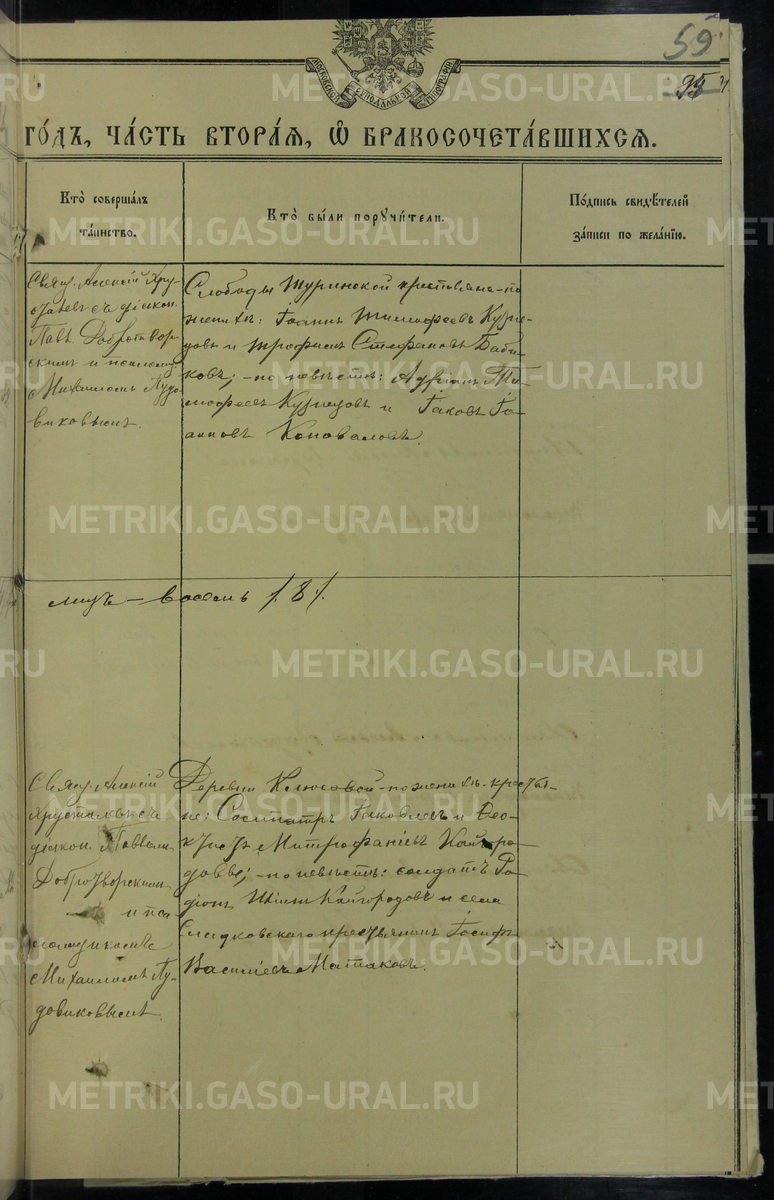 59
95
МОСКОВСКОЙ СѴНОДАЛЬНОЙ ТИПОГРАФІИ
ГОДЪ, ЧАСТЬ ВТОРАЯ, Ѽ БРАКОСОЧЕТАВШИХСЯ.
Кто совершалъ
таинство.
Кто были поручители.
Подпись свидѣтелей
записи по желанію.
Свящ. Алексій Хру-
сталевъ съ діакон.
Пав. Доброхотвор-
скимъ и псаломщ.
Михаиломъ Лудо-
виковымъ.
Слободы Туринской крестьяне - по
женихѣ: Іоаннъ Тимофеевъ Кузне-
цовъ и Трофимъ Стефановъ Баби-
ковъ; - по невѣстѣ: Адріанъ Ти-
мофеевъ Кузнецовъ и Іаковъ Іо-
анновъ Коноваловъ.
лицъ - восемь /8/.
Свящ. Алексій
Хрусталевъ съ
діакон. Павломъ
Добротворскимъ
и пса-
ломщикомъ
Михаиломъ Лу-
довиковымъ.
Деревни Клюсовой - по женихѣ - крестья-
не: Сосипатръ Іаковлевъ и Ѳео-
ктистъ Митрофаніевъ Кайгоро-
довы; - по невѣстѣ: солдатъ Ро-
діонъ Кайгородовъ и села
Сладковскаго крестьянинъ Іосифъ
Василіевъ Матаковъ.
METRIKI.GASO-URAL.RU